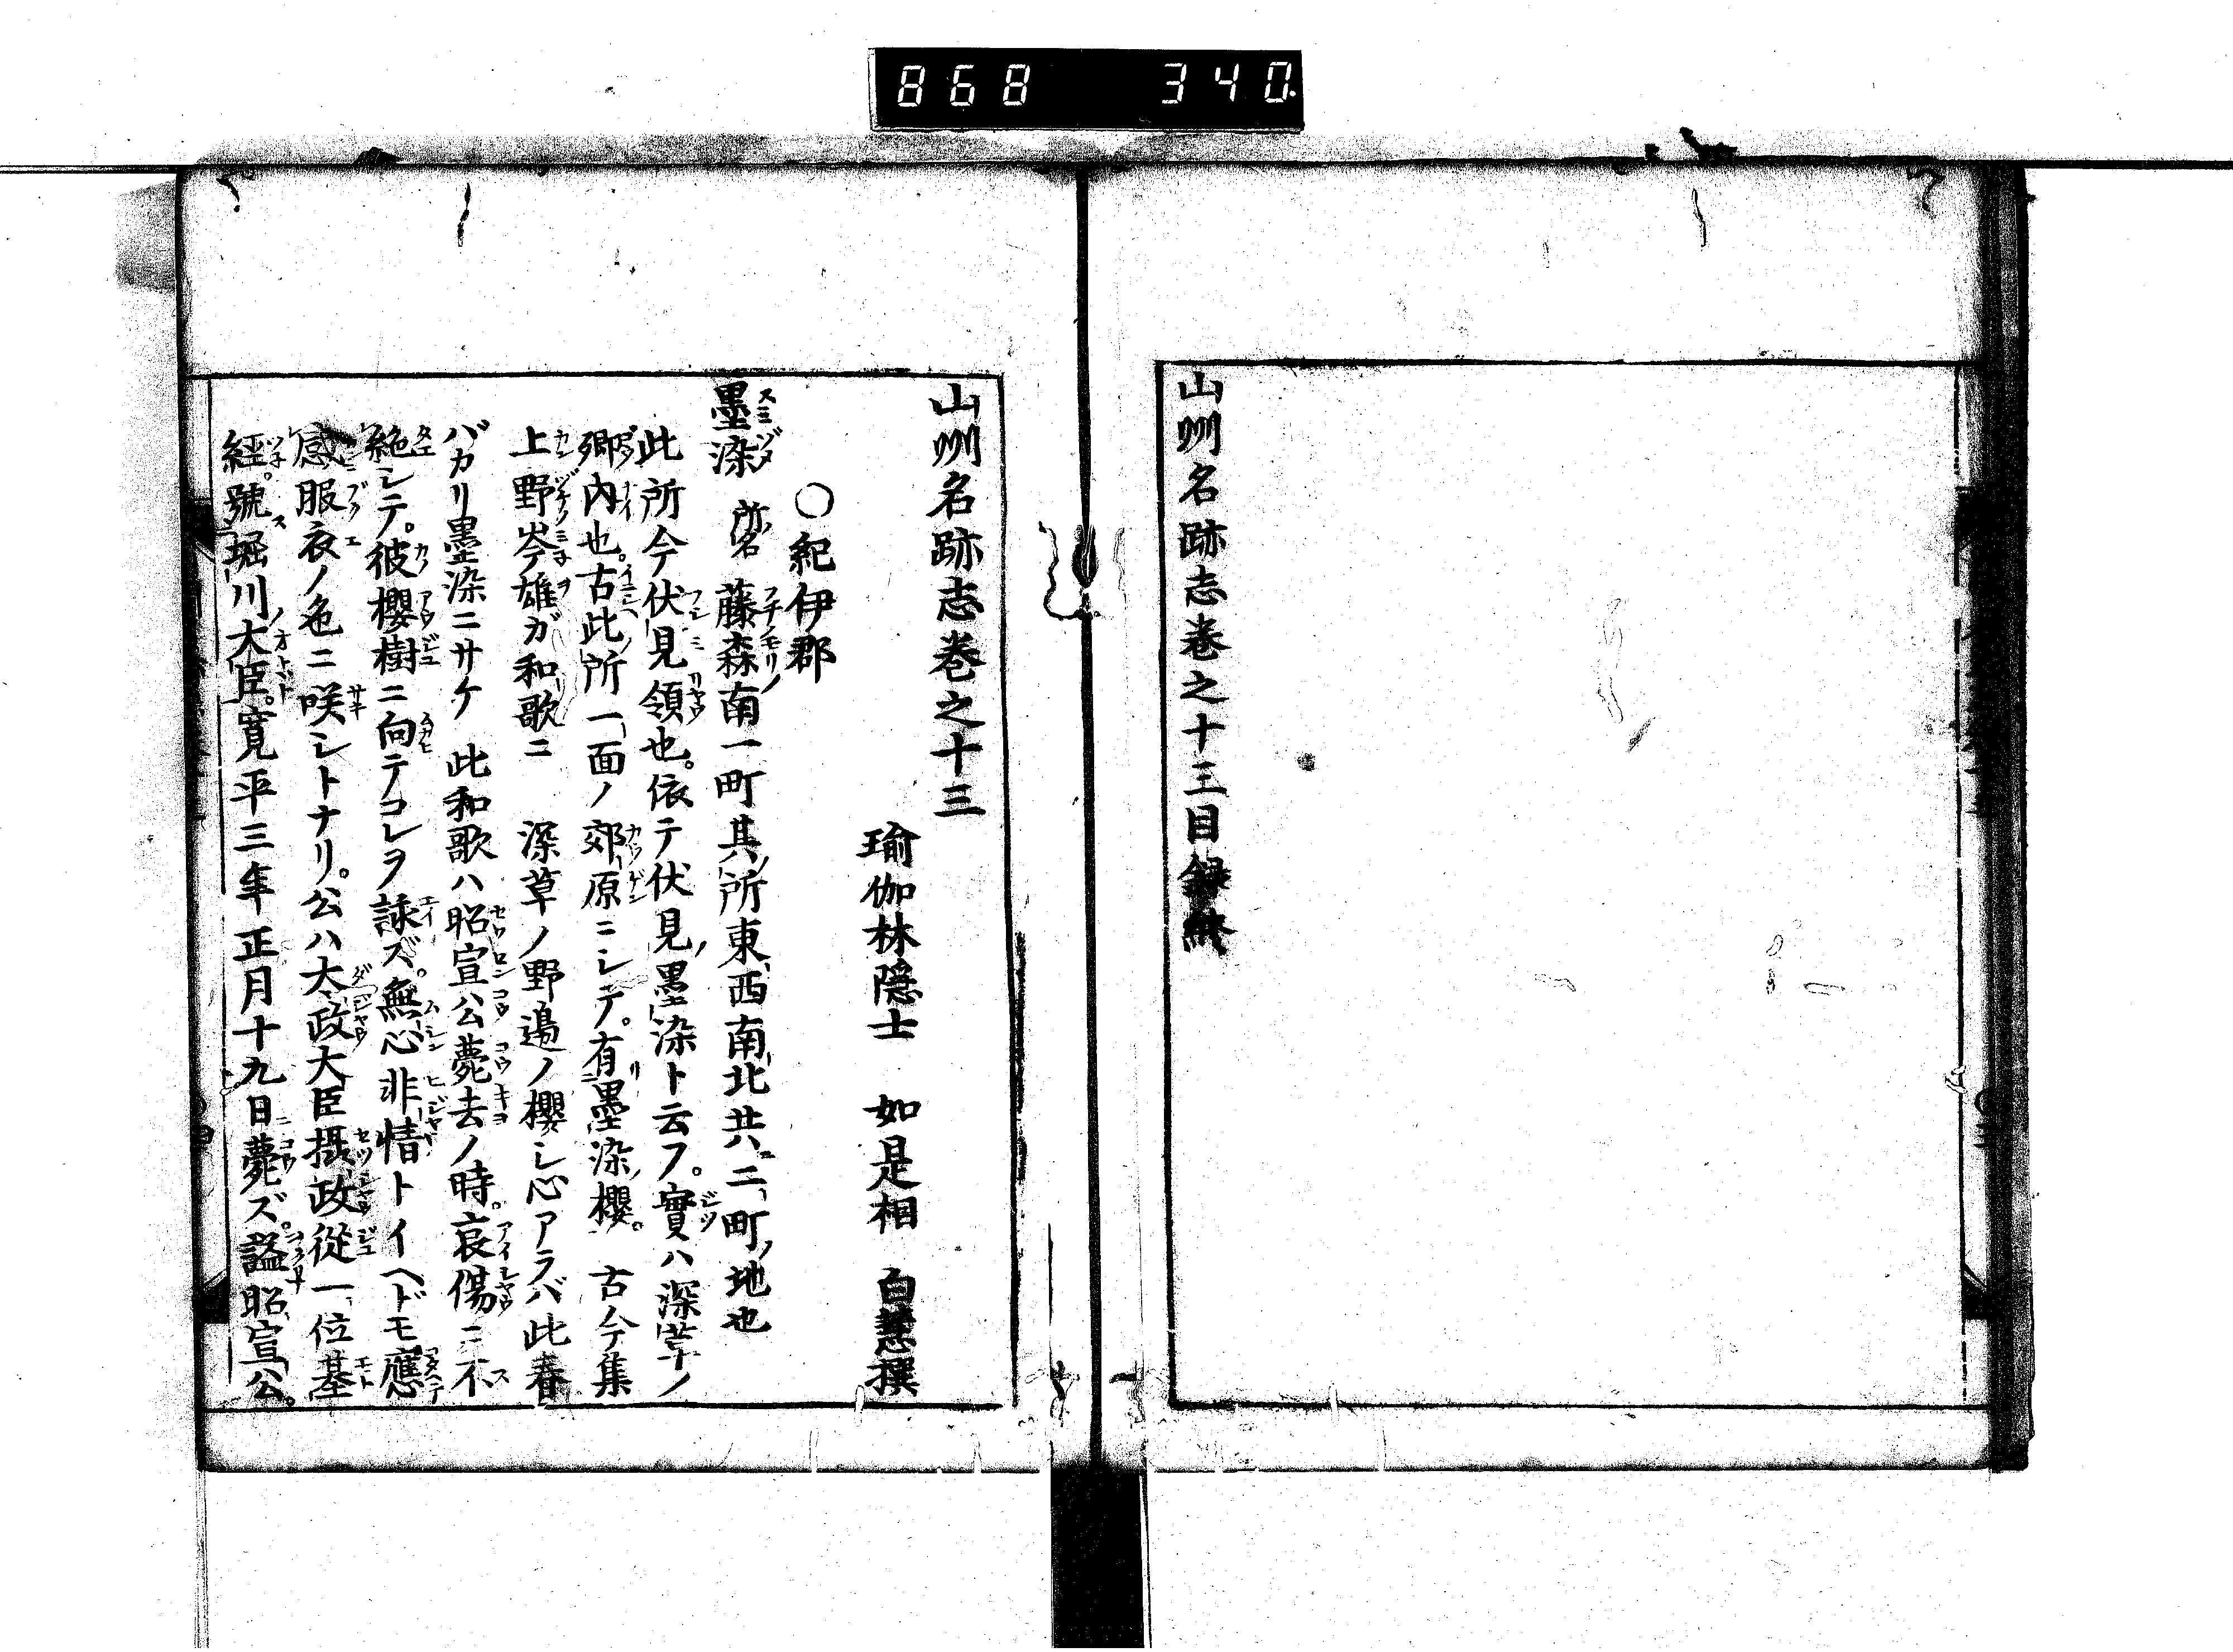 868 340
山州名跡志巻之十三目録終
山州名跡志巻之十三
瑜伽林隠士 如是相 白慧撰
○紀伊郡
墨染 所名 藤森南一町其所東西南北共二町ノ地也
此所今伏見領也。依テ伏見墨染ト云フ。實ハ深草ノ
郷内也。古此所一面ノ郊原ニシテ。有墨染櫻。古今集
上野岑雄ガ和歌ニ 深草ノ野邉ノ櫻シ心アラバ此春
バカリ墨染ニサケ 此和歌ハ昭宣公薨去ノ時。哀傷ニ不
絶シテ。彼櫻樹ニ向テコレヲ詠ズ。無心非情トイヘドモ應
感服衣ノ色ニ咲シトナリ。公ハ太政大臣摂政從一位基
經。號堀川大臣。寛平三年正月十九日薨ズ。謚昭宣公。